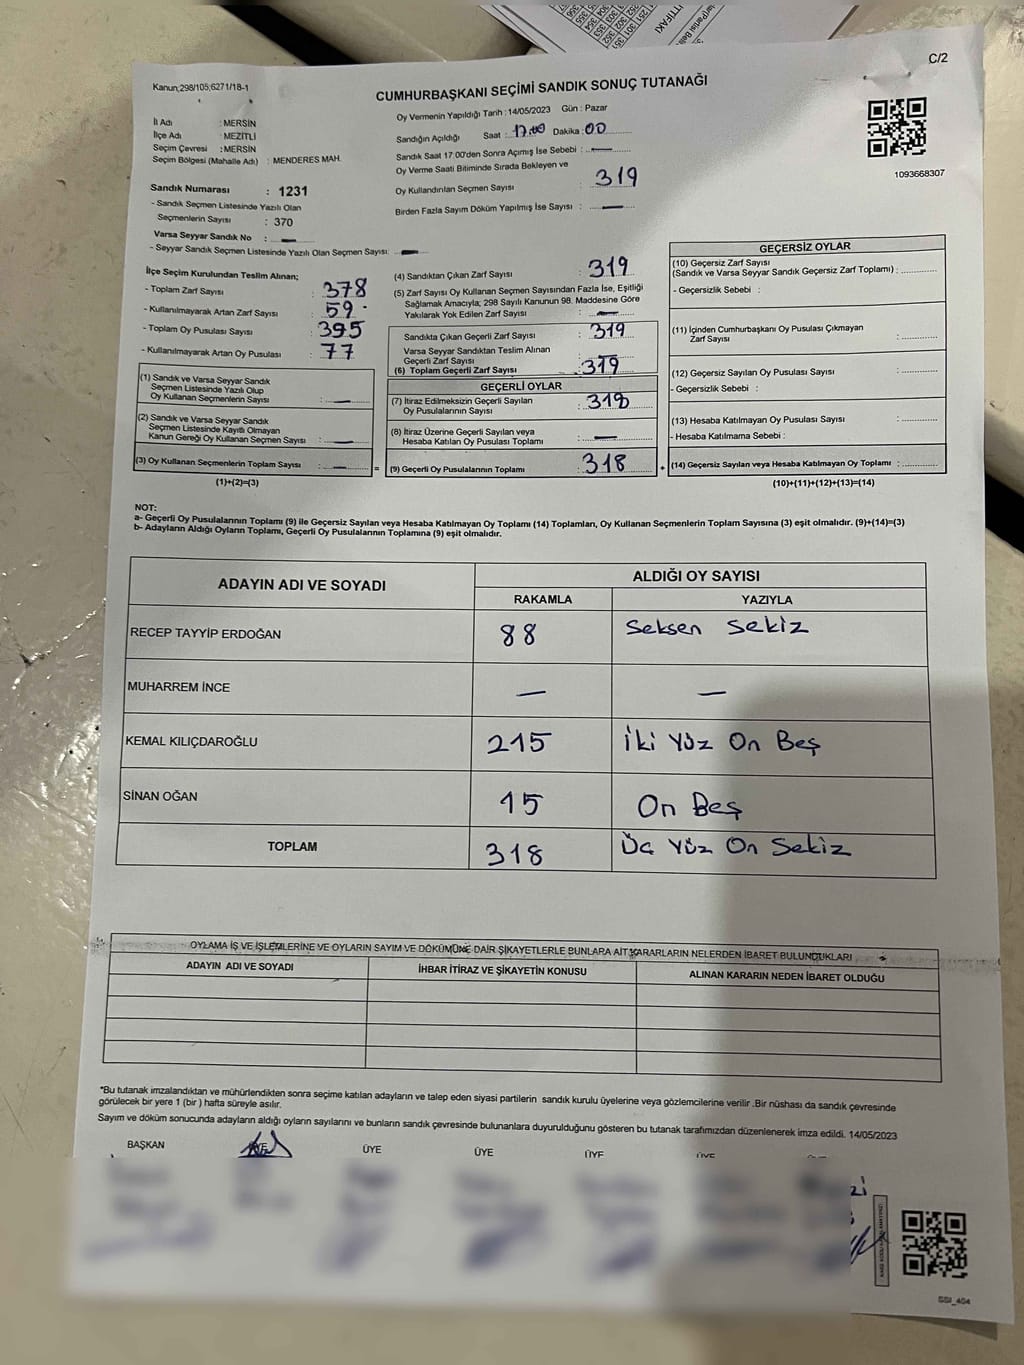 C/2
Kanun;298/105;6271/18-1
CUMHURBAŞKANI SEÇİMİ SANDIK SONUÇ TUTANAĞI
İl Adı : MERSİN
İlçe Adı : MEZİTLİ
Seçim Çevresi : MERSİN
Seçim Bölgesi (Mahalle Adı) : MENDERES MAH.
Sandık Numarası : 1231
- Sandık Seçmen Listesinde Yazılı Olan
Seçmenlerin Sayısı : 370
Varsa Seyyar Sandık No : —
- Seyyar Sandık Seçmen Listesinde Yazılı Olan Seçmen Sayısı: —
Oy Vermenin Yapıldığı Tarih : 14/05/2023 Gün : Pazar
Sandığın Açıldığı Saat : 17.00 Dakika : 00
Sandık Saat 17.00'den Sonra Açımış İse Sebebi : —
Oy Verme Saati Bitiminde Sırada Bekleyen ve
Oy Kullandırılan Seçmen Sayısı : 319
Birden Fazla Sayım Döküm Yapılmış İse Sayısı : —
1093668307
İlçe Seçim Kurulundan Teslim Alınan;
- Toplam Zarf Sayısı : 378
- Kullanılmayarak Artan Zarf Sayısı : 59
- Toplam Oy Pusulası Sayısı : 395
- Kullanılmayarak Artan Oy Pusulası : 77
(1) Sandık ve Varsa Seyyar Sandık
Seçmen Listesinde Yazılı Olup
Oy Kullanan Seçmenlerin Sayısı : —
(2) Sandık ve Varsa Seyyar Sandık
Seçmen Listesinde Kayıtlı Olmayan
Kanun Gereği Oy Kullanan Seçmen Sayısı : —
(3) Oy Kullanan Seçmenlerin Toplam Sayısı : — =
(1)+(2)=(3)
(4) Sandıktan Çıkan Zarf Sayısı : 319
(5) Zarf Sayısı Oy Kullanan Seçmen Sayısından Fazla İse, Eşitliği
Sağlamak Amacıyla; 298 Sayılı Kanunun 98. Maddesine Göre
Yakılarak Yok Edilen Zarf Sayısı : —
Sandıkta Çıkan Geçerli Zarf Sayısı : 319
Varsa Seyyar Sandıktan Teslim Alınan
Geçerli Zarf Sayısı : —
(6) Toplam Geçerli Zarf Sayısı : 319
GEÇERLİ OYLAR
(7) İtiraz Edilmeksizin Geçerli Sayılan
Oy Pusulalarının Sayısı : 318
(8) İtiraz Üzerine Geçerli Sayılan veya
Hesaba Katılan Oy Pusulası Toplamı : —
(9) Geçerli Oy Pusulalarının Toplamı : 318 +
GEÇERSİZ OYLAR
(10) Geçersiz Zarf Sayısı
(Sandık ve Varsa Seyyar Sandık Geçersiz Zarf Toplamı) :
- Geçersizlik Sebebi :
(11) İçinden Cumhurbaşkanı Oy Pusulası Çıkmayan
Zarf Sayısı :
(12) Geçersiz Sayılan Oy Pusulası Sayısı :
- Geçersizlik Sebebi :
(13) Hesaba Katılmayan Oy Pusulası Sayısı :
- Hesaba Katılmama Sebebi :
(14) Geçersiz Sayılan veya Hesaba Katılmayan Oy Toplamı :
(10)+(11)+(12)+(13)=(14)
NOT:
a- Geçerli Oy Pusulalarının Toplamı (9) ile Geçersiz Sayılan veya Hesaba Katılmayan Oy Toplamı (14) Toplamları, Oy Kullanan Seçmenlerin Toplam Sayısına (3) eşit olmalıdır. (9)+(14)=(3)
b- Adayların Aldığı Oyların Toplamı, Geçerli Oy Pusulalarının Toplamına (9) eşit olmalıdır.
ADAYIN ADI VE SOYADI ALDIĞI OY SAYISI
RAKAMLA YAZIYLA
RECEP TAYYİP ERDOĞAN 88 Seksen Sekiz
MUHARREM İNCE — —
KEMAL KILIÇDAROĞLU 215 İki Yüz On Beş
SİNAN OĞAN 15 On Beş
TOPLAM 318 Üç Yüz On Sekiz
OYLAMA İŞ VE İŞLEMLERİNE VE OYLARIN SAYIM VE DÖKÜMÜNE DAİR ŞİKAYETLERLE BUNLARA AİT KARARLARIN NELERDEN İBARET BULUNDUKLARI
ADAYIN ADI VE SOYADI İHBAR İTİRAZ VE ŞİKAYETİN KONUSU ALINAN KARARIN NEDEN İBARET OLDUĞU
*Bu tutanak imzalandıktan ve mühürlendikten sonra seçime katılan adayların ve talep eden siyasi partilerin sandık kurulu üyelerine veya gözlemcilerine verilir .Bir nüshası da sandık çevresinde
görülecek bir yere 1 (bir ) hafta süreyle asılır.
Sayım ve döküm sonucunda adayların aldığı oyların sayılarını ve bunların sandık çevresinde bulunanlara duyurulduğunu gösteren bu tutanak tarafımızdan düzenlenerek imza edildi. 14/05/2023
BAŞKAN ÜYE ÜYE ÜYE ÜYE
SSI_404